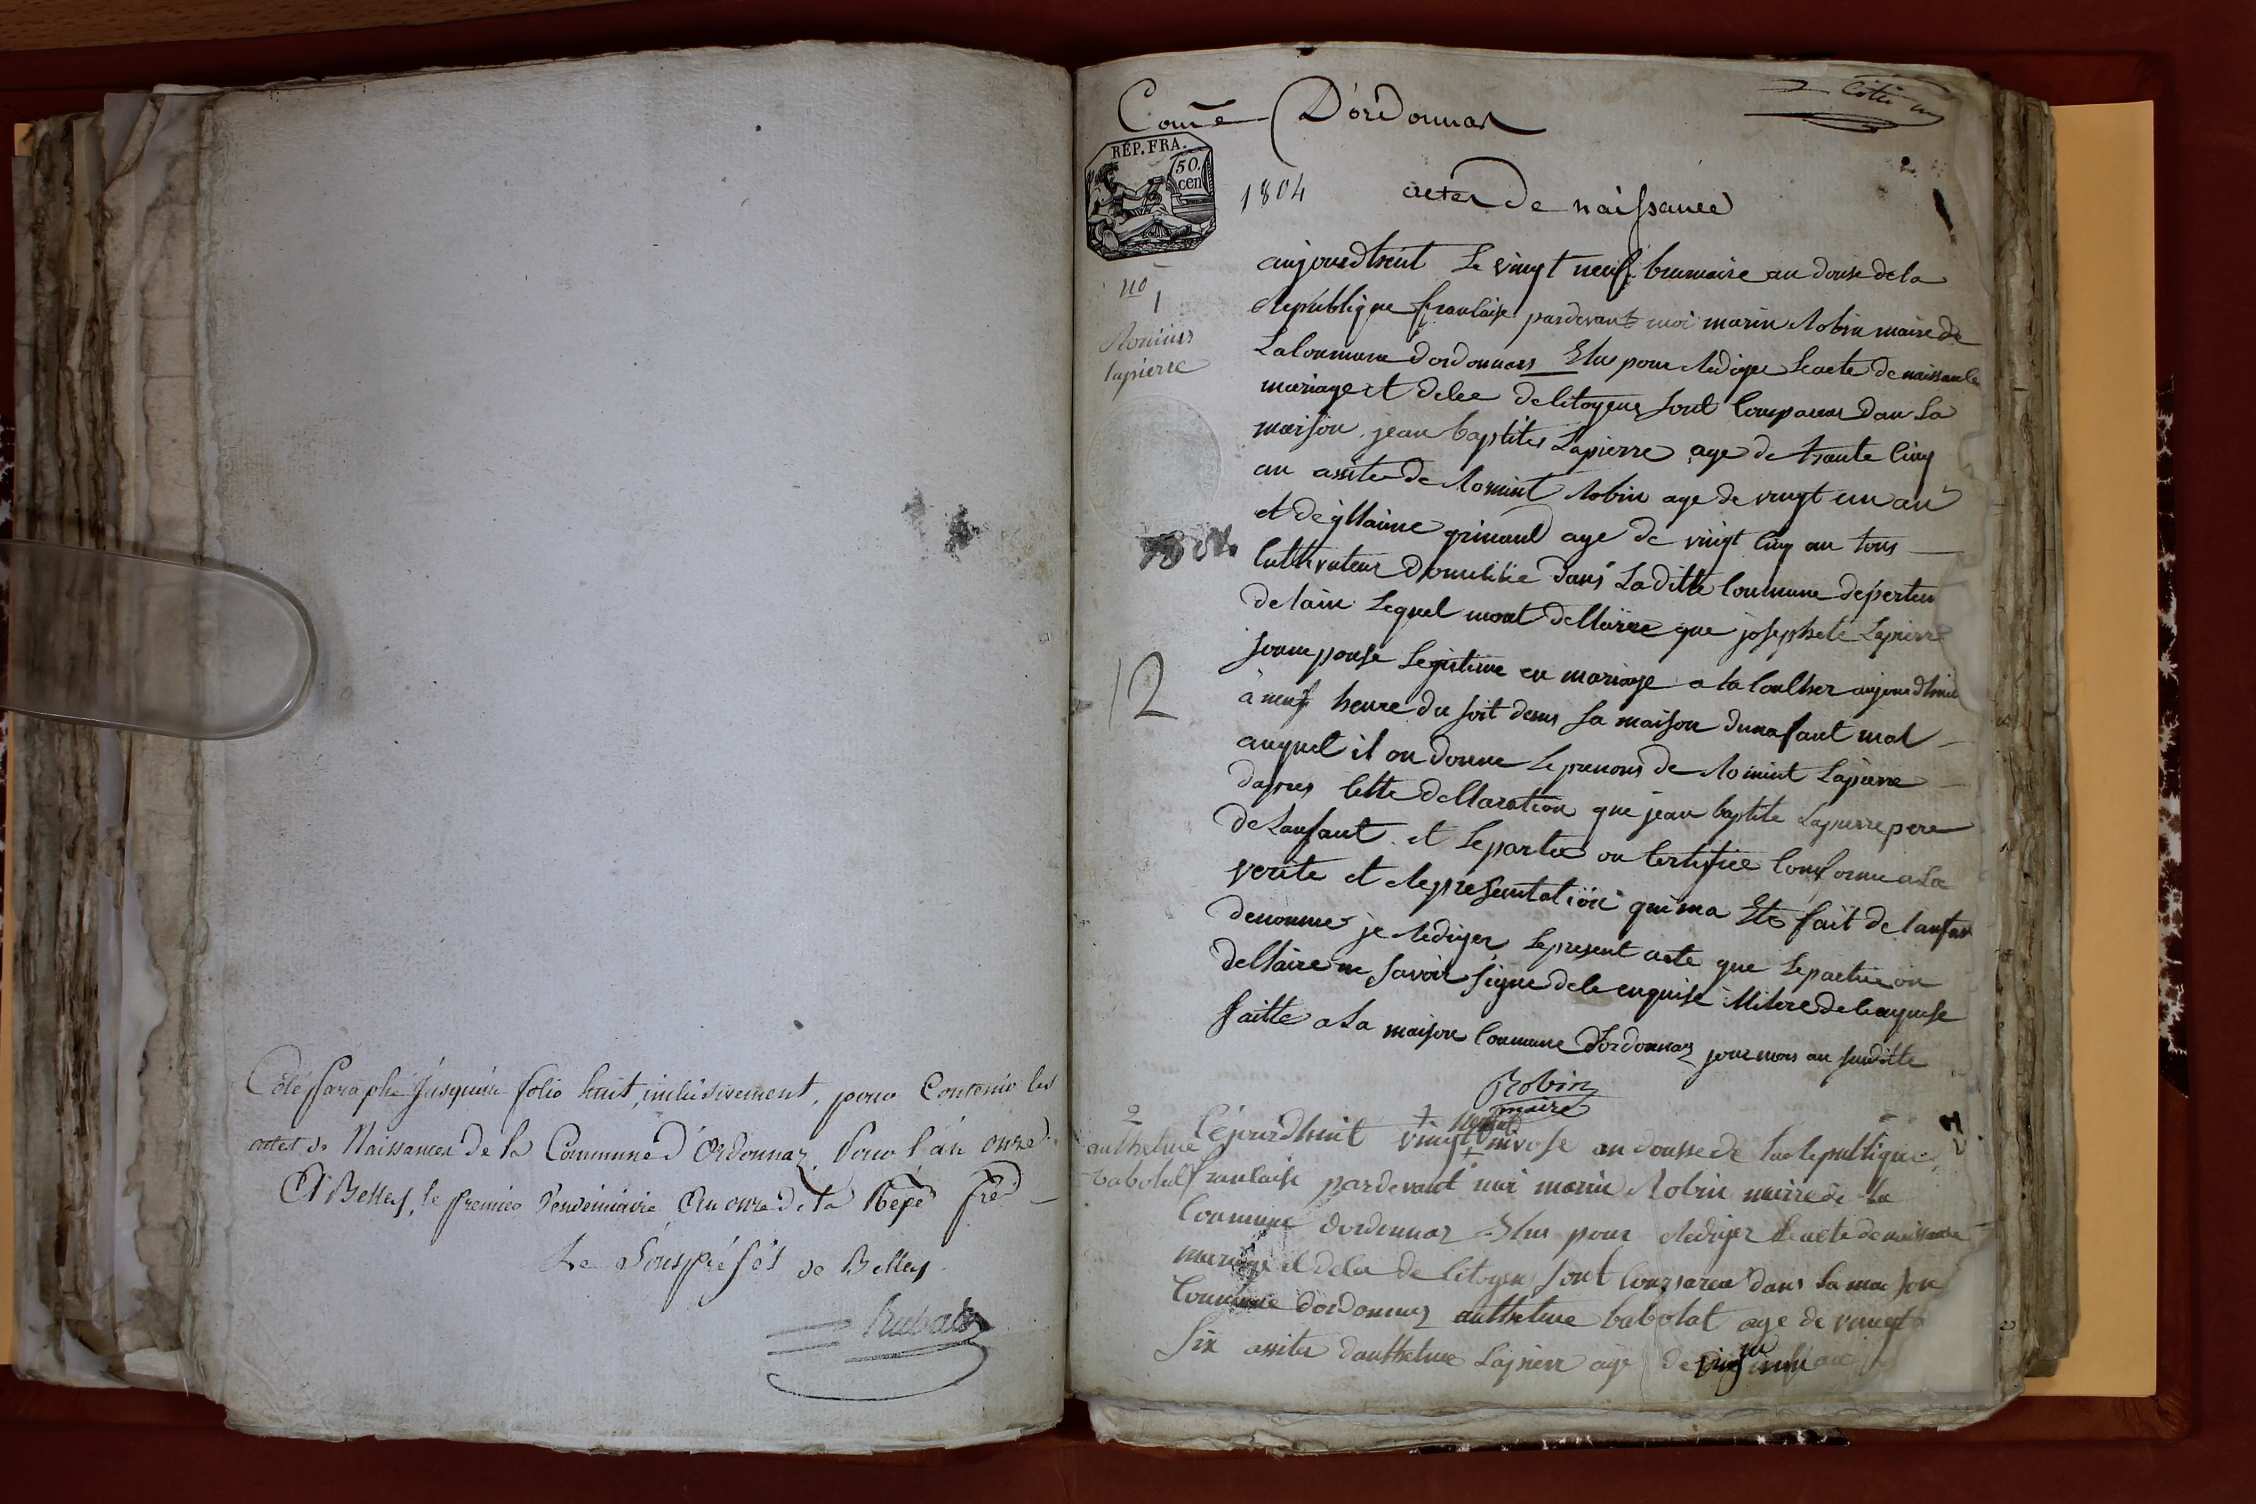 Coté & paraphé Jusqu'au folio huit inclusivement, pour Contenir les
actes de Naissances de la Commune d'Ordonnaz Pour l'an onze
A Belley, le premier Vendemiaire an onze de la Répe fre
Le Sousprefet de Belley
Rubat
Coue D'ordonnas
Cotté
REP. FRA.
50. cen
1804
actes de naissance
no 1
Rominis
lapierre
aujourdhuit Le vingt neuf brumaire an douse de la
Republique franlaise pardevant moi marin Robin maire de
La Commune dordonnas Elus pour Rediger Le acte de naissanle
mariage et de de litoyens sont Comparus dan La
maison jean baptites Lapierre age de trante cinq
an assite de Romint Robin age de vingt un an
et de grinand age de vingt cinq an tous
Cultivateur domicilie dans Laditte Coummune depertem
de lain Lequel mont dellairee que josephete Lapierre
son eponse Legistime en mariage a la coulher aujourdhuit
à neuf heure du soit dans sa maison dunafant mal
auquel il on donne Le prenoms de Romint Lapierre
dapres lette dellaration que jean baptite Lapierre pere
de Lanfant et Le partes on Certifiee Conforme a La
verite et Represantation qui ma Ete fait de lanfan
denomme je Rediger Le present acte que Le partie on
dellaire ne savoir signe de le enquise
faitte a La maison Commune Dordonnaz jour mois an suditte
Robin
maire
2
anthelme
babolat
Cejourdhuit vingt nivose an dousse de La Republique
franlaise pardevant moi marin Robin maire de La
Commune dordonnaz Elus pour Rediger Le acte de naissanle
mariage et de de litoyen sont Comparu dans La maison
Commune dordonnaz anthelme babolat age de vingt
six assites danthelme Lapierr age de
12